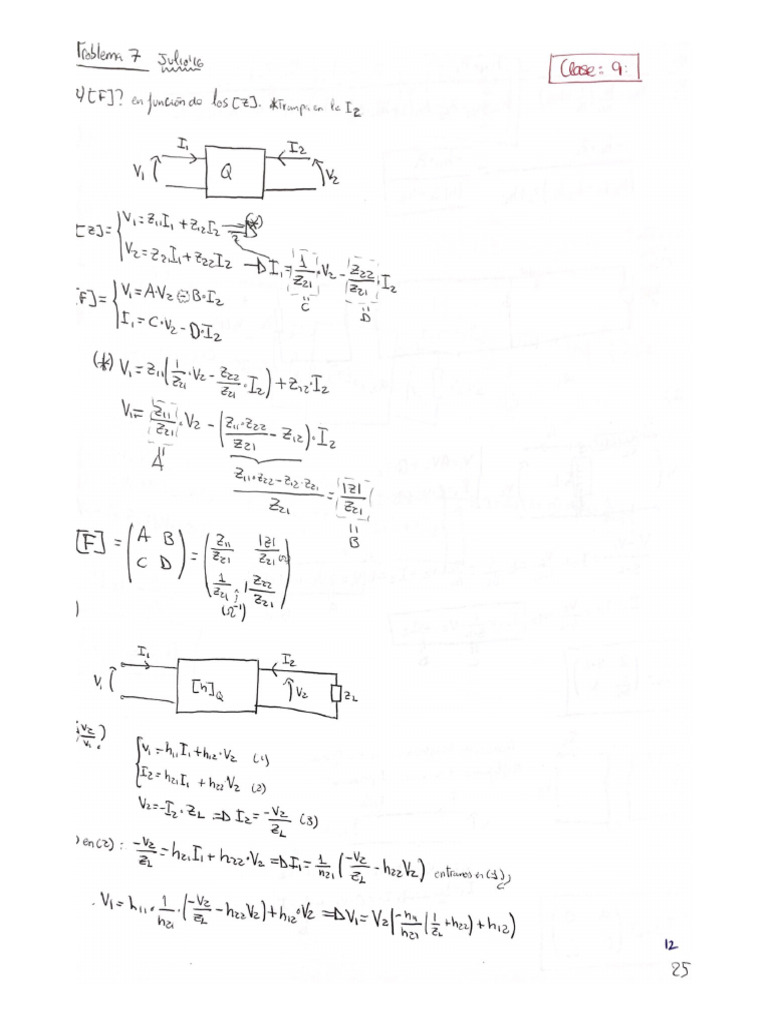 Problema 7 Julio'16
Clase: 9:
[F]? en función de los [Z]. en la I2
I1 I2
V1 Q V2
[Z]= { V1=Z11I1+Z12I2 ⇒ (*)
V2=Z21I1+Z22I2 → I1= 1/Z21 · V2 - Z22/Z21 · I2
C D
[F]= { V1=A·V2 - B·I2
I1=C·V2-D·I2
(*) V1=Z11(1/Z21 · V2 - Z22/Z21 · I2)+Z12·I2
V1= Z11/Z21 · V2 - (Z11·Z22/Z21 - Z12)·I2
A
Z11·Z22-Z12·Z21/Z21 = |Z|/Z21
B
[F] = (A B C D) = (Z11/Z21 |Z|/Z21 (Ω) 1/Z21 ; Z22/Z21)
(Ω⁻¹)
)
I1 I2
V1 [h]Q V2 ZL
¿V2/V1?
{ V1=h11I1+h12·V2 (1)
I2=h21I1+h22·V2 (2)
V2=-I2·ZL ⇒ I2= -V2/ZL (3)
) en (2): -V2/ZL = h21I1+h22·V2 ⇒ I1= 1/h21 (-V2/ZL - h22V2) entramos en (1)
. V1=h11· 1/h21 ·(-V2/ZL - h22V2)+h12·V2 ⇒ V1=V2(-h11/h21 (1/ZL + h22)+h12)
12
25